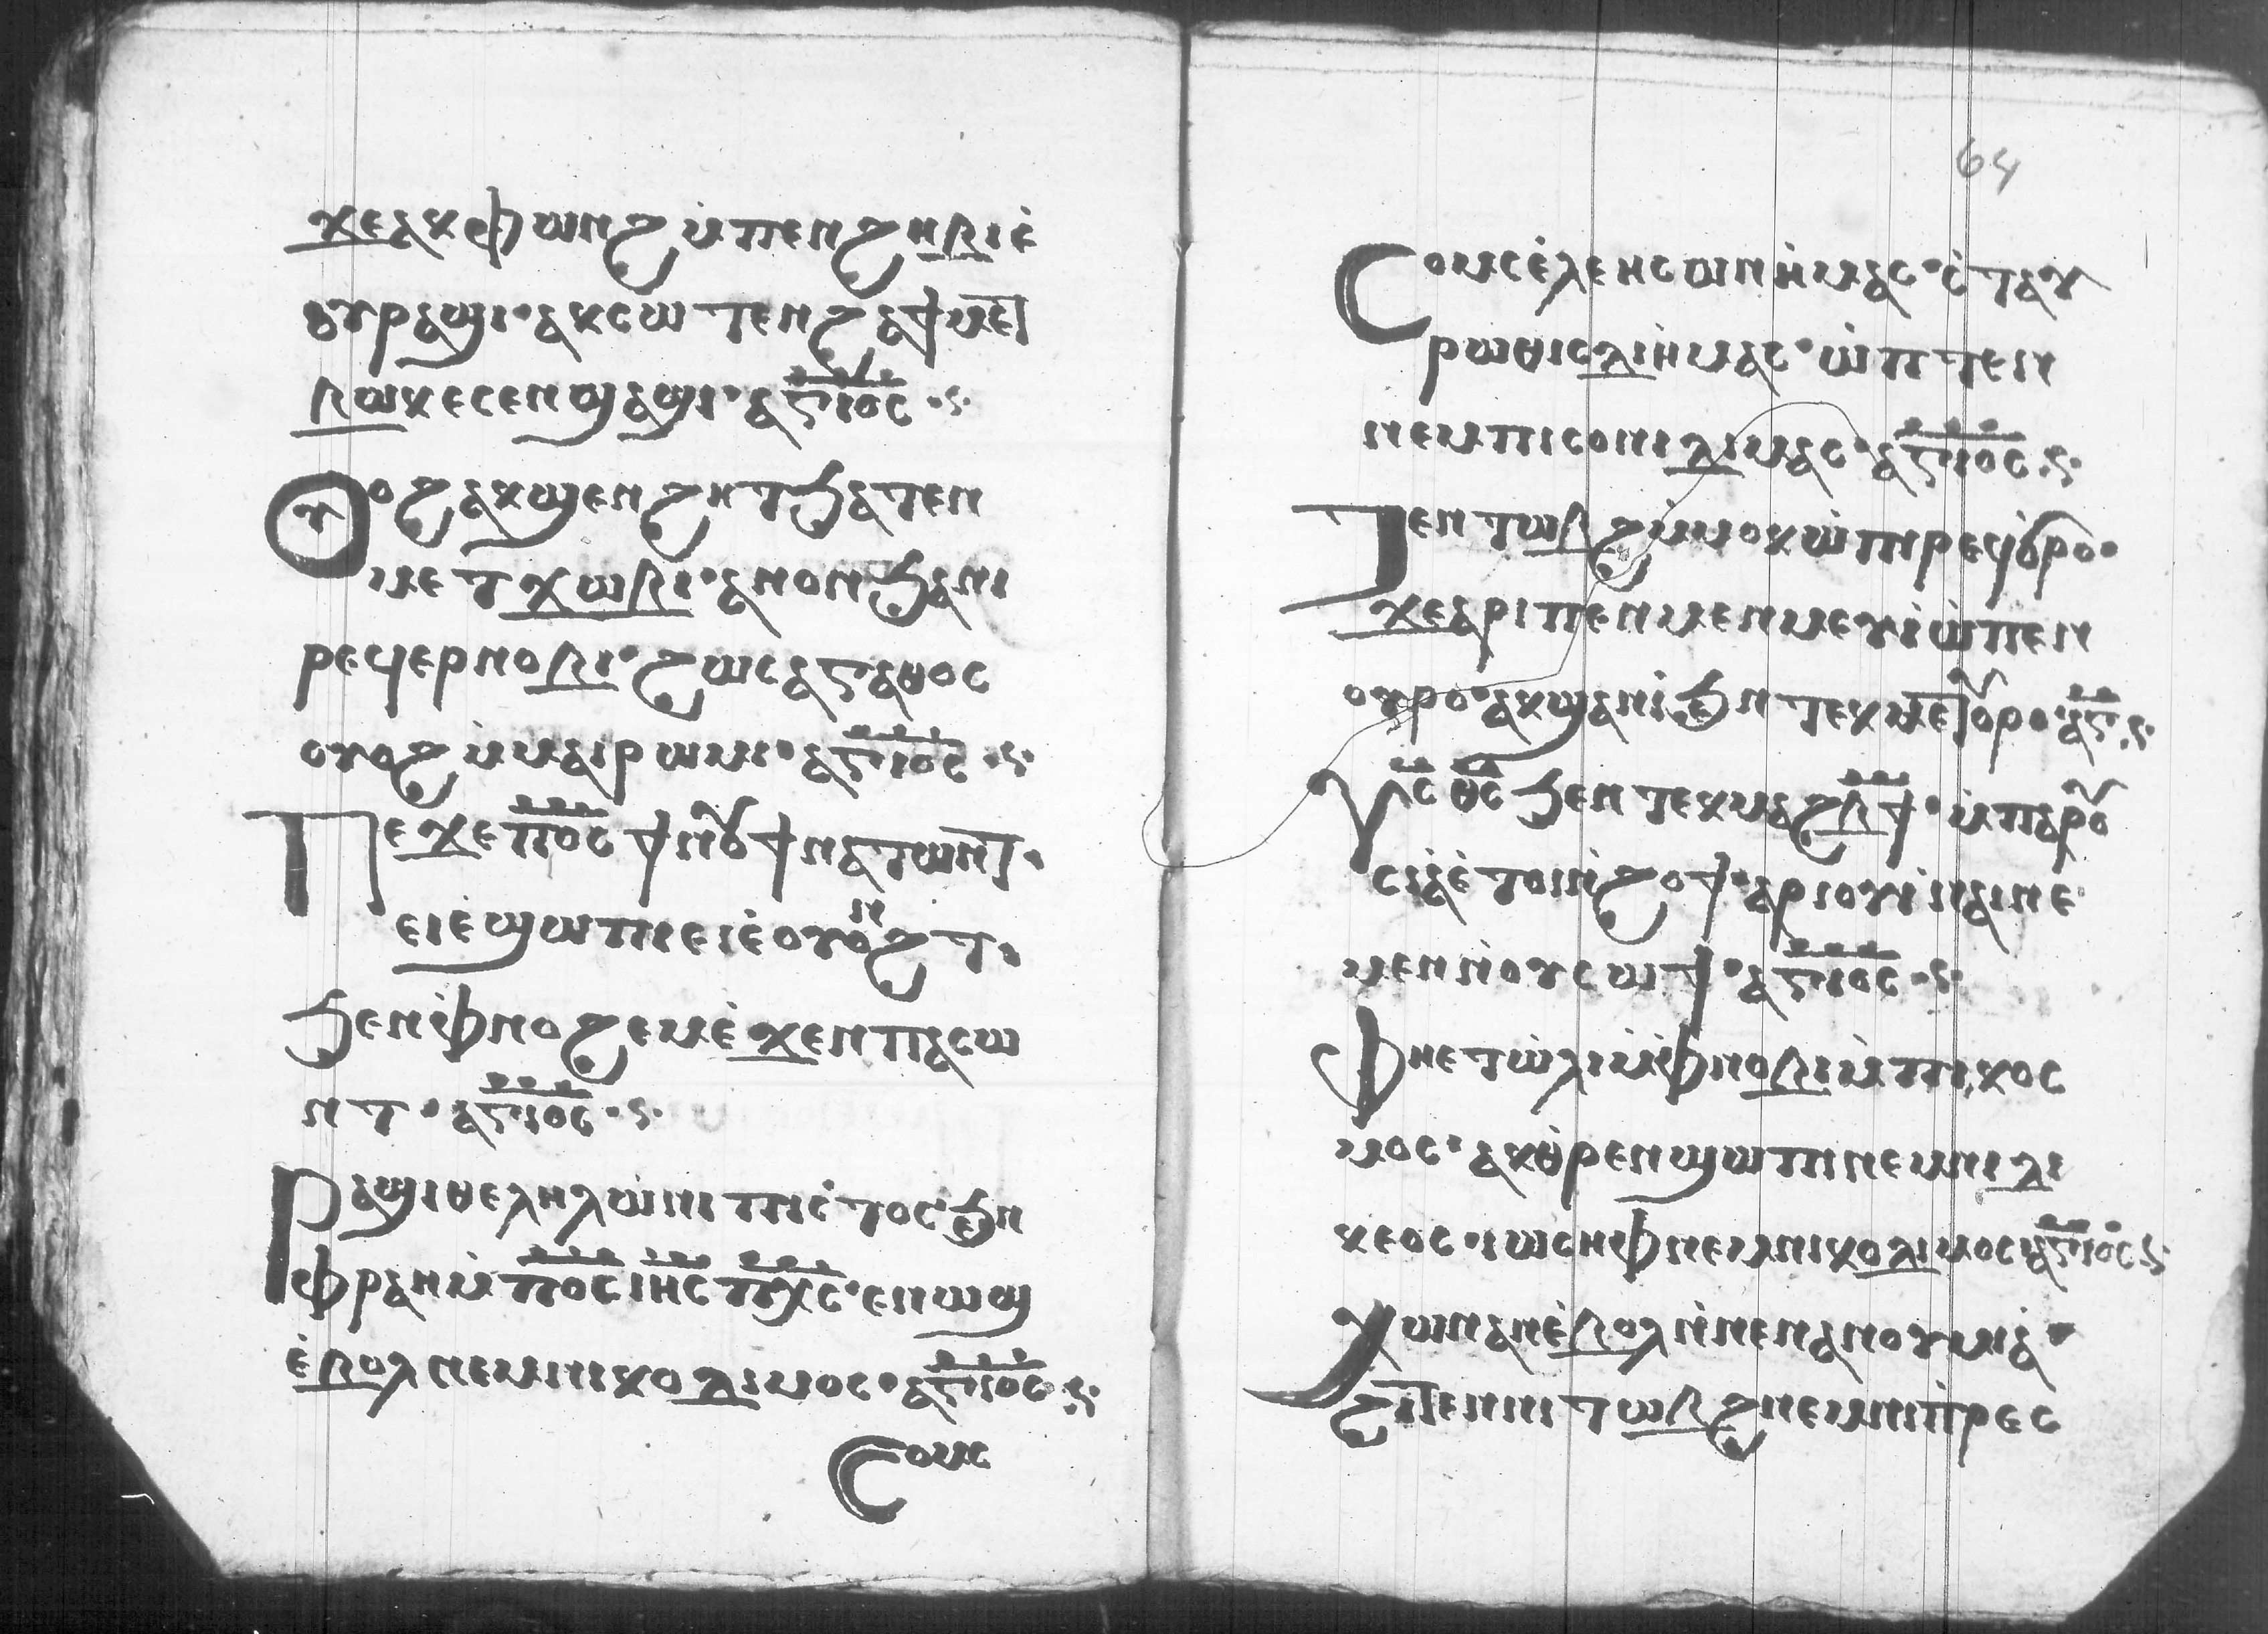 ϫⲉⲁⲕⲫⲱⲛϩ ⲙ̇ⲡⲉⲛϩⲏⲃⲓ ⲉ̇
ⲟⲩⲣⲁϣⲓ · ⲁⲕⲥⲱⲧⲉⲛϩ ⲁϯⲙⲉⲧ
ⲃⲱⲕ ⲉⲥⲉⲛϣⲁϣⲓ · ⲁⲅⲓⲟⲥ · ⲋ ·
Ⲟⲩⲟϩ ⲁⲕϣⲉⲛϩⲏⲧ ϧⲁⲧⲉⲛ
ⲙⲉⲧϫⲱⲃⲓ · ⲁⲛⲟⲛ ϧⲁⲛⲓ
ⲣⲉϥⲉⲣⲛⲟⲃⲓ · ϩⲱⲥ ⲁⲅⲁⲑⲟⲥ
ⲟⲩⲟϩ ⲙ̇ⲙⲁⲓⲣⲱⲙⲓ · ⲁⲅⲓⲟⲥ · ⲋ ·
Ⲡⲉϫⲉ ⲡⲟ̅ⲥ̅ ϯⲛⲟⲩ ϯⲛⲁⲧⲱⲛⲧ ·
ⲉⲓⲉ̇ϣⲱⲡⲓ ⲉⲓⲉ̇ⲟⲩⲟⲛϩⲧ ·
ϧⲉⲛ ⲫ̇ⲛⲟϩⲉⲙ ⲉ̇ϫⲉⲛ ⲡⲁⲥⲱ
ⲛⲧ · ⲁⲅⲓⲟⲥ · ⲋ ·
Ⲣⲁϣⲓ ⲑⲉⲗⲏⲗ ⲱ̇ ⲛⲓⲡⲓⲥⲧⲟⲥ ϧⲉⲛ
ⲫ̇ⲣⲁⲛ ⲙ̇ⲡⲟ̅ⲥ̅ ⲓⲏ̅ⲥ̅ ⲡⲭ̅ⲥ̅ · ⲉⲛⲱϣ
ⲉ̇ⲃⲟⲗ ⲛⲉⲙ ⲛⲓⲕⲟⲗⲓⲙⲟⲥ · ⲁⲅⲓⲟⲥ · ⲋ ·
Ⲥⲟⲙⲥ
64
Ⲥⲟⲙⲥ ⲉ̇ⲗⲉⲏⲥⲱⲛ ⲏ̇ⲙⲁⲥ · ⲥ̇ⲧⲁⲩ
ⲣⲱⲑⲓⲥ ⲗⲓ ⲏ̇ⲙⲁⲥ · ⲱ̇ ⲡⲧⲉⲛ
ⲛⲉⲙ ⲡⲓⲥⲟⲛⲓ ⲗⲓⲙⲁⲥ · ⲁⲅⲓⲟⲥ · ⲋ ·
Ⲧⲉⲛⲧⲱⲃϩ ⲙ̇ⲙⲟⲕ ⲱ̇ ⲡⲓⲣⲉϥϭⲣⲟ ·
ϫⲉ ⲁⲣⲓⲡⲉⲛⲙⲉⲩⲓ̇ ⲱ̇ ⲡⲉⲛ
ⲟⲩⲣⲟ · ⲁⲕϣⲁⲛⲓ̇ ϧⲉⲛ ⲧⲉⲕⲙⲉⲧⲟⲩⲣⲟ · ⲁⲅ · ⲋ ·
Ⲩⲥ̅ ⲑ̅ⲥ̅ ϧⲉⲛ ⲧⲉⲕⲙⲁϩⲃ̅ϯ · ⲙ̇ⲡⲁⲣⲟⲩ
ⲥⲓⲁ̇ ⲉ̇ⲧⲟⲓ ⲛ̇ϩⲟϯ · ⲁⲣⲓⲟⲩⲓ̇ ⲛⲁⲓ ⲛⲉ
ⲙⲉⲛ ⲛ̇ⲟⲩⲥⲱϯ · ⲁⲅⲓⲟⲥ · ⲋ ·
Ⲫⲏⲉⲧⲱ̇ⲗⲓ ⲙ̇ⲫ̇ⲛⲟⲃⲓ ⲙ̇ⲡⲓⲕⲟⲥ
ⲙⲟⲥ · ⲁⲕⲑ̇ⲣⲉⲛϣⲱⲡⲓ ⲛⲉⲙ ⲛⲓⲇⲓ
ⲕⲉⲟⲥ · ⲓⲱⲥⲏⲫ ⲛⲉⲙ ⲛⲓⲕⲟⲇⲓⲙⲟⲥ ⲁⲅⲓⲟⲥ ⲋ ·
Ⲭⲱ ⲛⲁⲛ ⲉ̇ⲃⲟⲗ ⲛ̇ⲛⲉⲛⲁⲛⲟⲙⲓⲁ̇ ·
ϩⲓⲧⲉⲛ ⲛⲓⲧⲱⲃϩ ⲛⲉⲙ ⲛⲓⲡ̇ⲣⲉⲥ